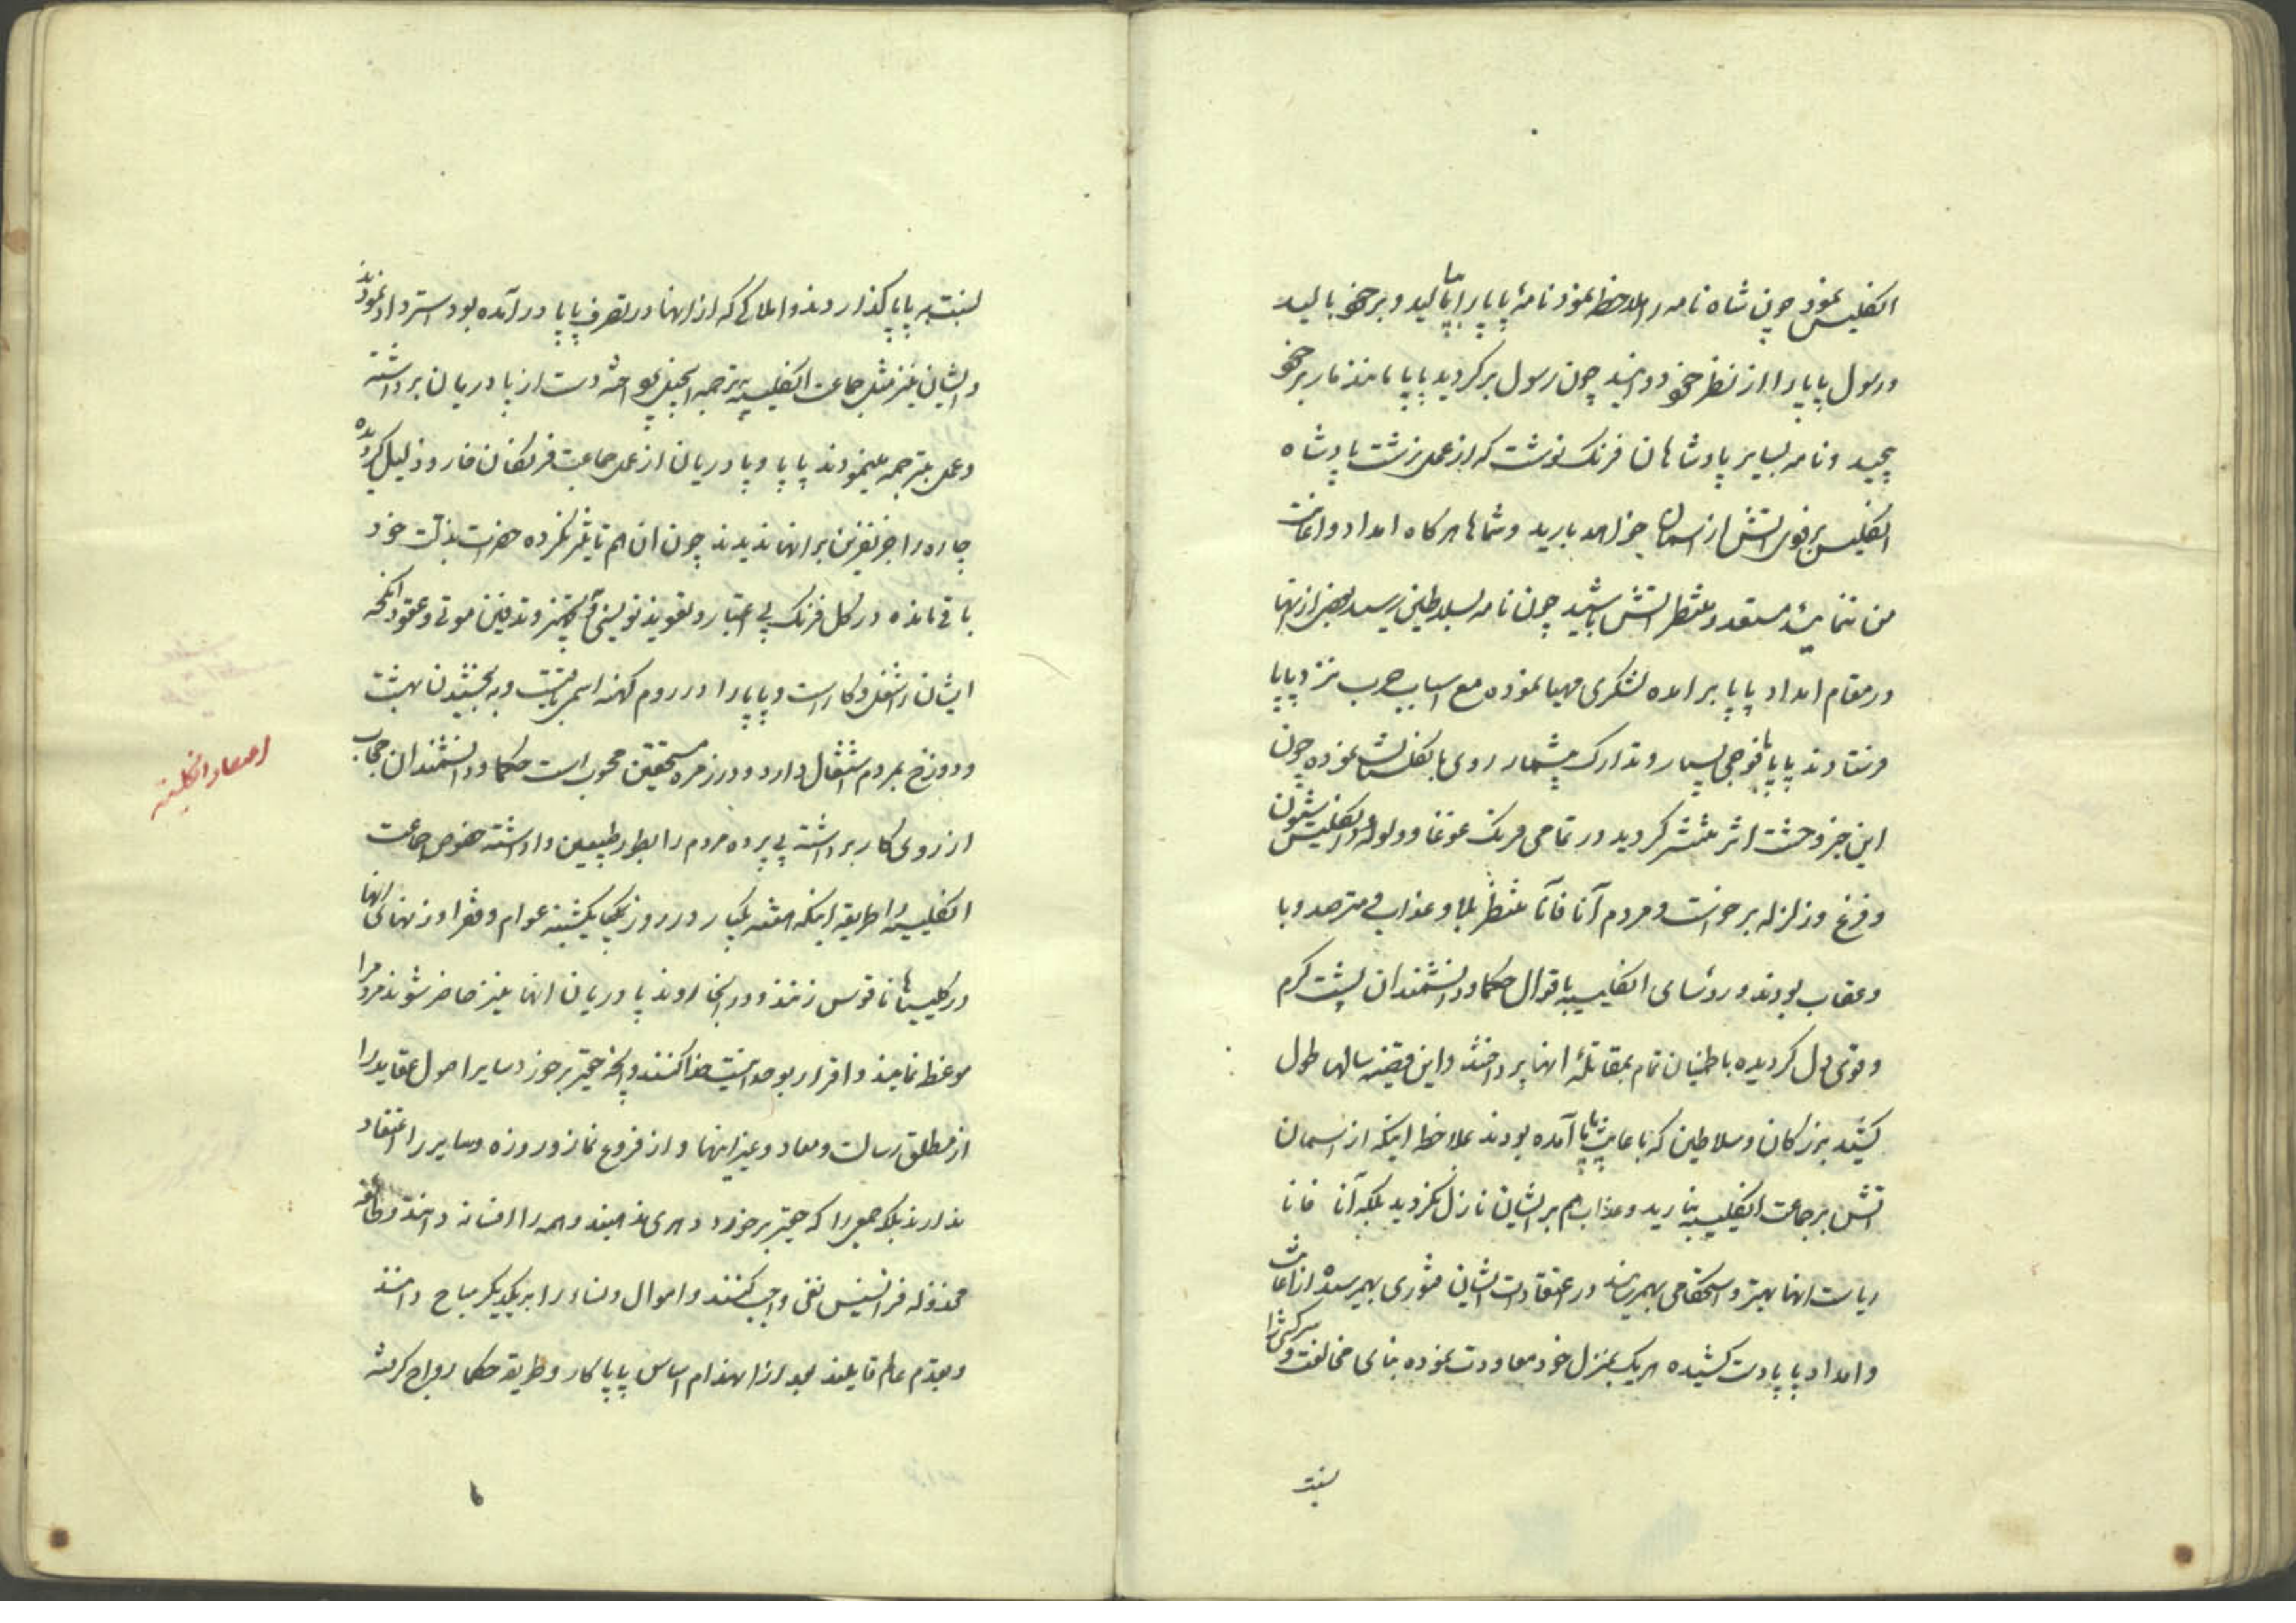 انکلیس نمود چون شاه نامه را ملاحظه نمود نامهٔ پاپا را پامالید و بر خود بالید
و رسول پاپا را از نظر خود دوانید چون رسول برکردید پاپا مانند مار بر خود
پیچید و نامه بسایر پادشاهان فرنک نوشت که از عمل زشت پادشاه
انکلیس بزودی اتش از اسمان خواهد بارید و شماها هر کاه امداد و اعانت
من ننمائید مستعد و منتظر اتش باشید چون نامه بسلاطین رسید بعضی از انها
در مقام امداد پاپا بر امده لشکری مهیا نموده مع اسباب حرب نزد پاپا
فرستادند پاپا با فوجی بسیار و تدارک بیشمار روی بانکلستان نموده چون
این خبر وحشت اثر منتشر کردید در تمامی فرنک غوغا و ولوله در انکلیس شیون
و فزع و زلزله برخواست و مردم آنا فآنا منتظر بلا و عذاب و مترصد وبا
و عقاب بودند و رؤسای انکلیسیه باقوال حکما و دانشمندان پشت کرم
و قوی دل کردیده باطمینان تمام بمقاتلهٔ انها پرداختند و این قضیه سالها طول
کشید بزرکان و سلاطین که باعانت پاپا آمده بودند بملاحظه اینکه از اسمان
اتش بر جماعت انکلیسیه نبارید و عذاب هم بر ایشان نازل نکردید بلکه آنا فانا
ریاست انها بهتر و استحکامی بهمرسانید در اعتقادات ایشان فتوری بهمرسیده از اعانت
و امداد پاپا دست کشیده هر یک بمنزل خود معاودت نموده بنای مخالفت و سرکشی را
نسبت
نسبت به پاپا کذاردند و املاکی که از انها در تصرف پاپا در آمده بود استرداد نمودند
و ایشان نیز مثل جماعت انکلیسیه بترجمه انجیل پرداخته دست از پادریان برداشته
و عمل بترجمه مینمودند پاپا و پادریان از عمل جماعت فرنکان خار و ذلیل کردیده
چاره را جز نفرین بر انها ندیدند چون ان هم تاثیر نکرده حضرات بذلت خود
باقی مانده در کل فرنک بی اعتبار و تعویذ نویسی و تکفین و تدفین موتی و عقود انکحه
ایشان را شغل و کار است و پاپا را در روم کهنه اسمی باقیست و به بخشیدن بهشت
و دوزخ بمردم اشتغال دارد و در زمره مستحقین محسوب است حکما و دانشمندان حجاب
از روی کار برداشته بی پرده مردم را بطور طبیعین واداشته خصوص جماعت
انکلیسیه را طریقه اینکه هفته یکبار در روز یکشنبه عوام و فقرا و زنهای انها
در کلیساها ناقوس زنند و در انجا روند پادریان انها نیز حاضر شوند مردم را
موعظه نمایند و اقرار بوحدانیت خدا کنند و انچه حجتی بر خود و سایر اصول عقاید را
از مطلق رسالت و معاد و غیر اینها و از فروع نماز و روزه و سایر را اعتقاد
ندارند بلکه جمعی را که حجتی بر خود دهری مذهبند و همه را افسانه دانند و طایفه
مخذوله فرانسیس نفی واجب کنند و اموال و نساء را بر یکدیکر مباح دانند
و بقدم عالم قایلند بعد از انهدام اساس پاپا کار و طریقه حکما رواج کرفته
احصار انکلیسیه